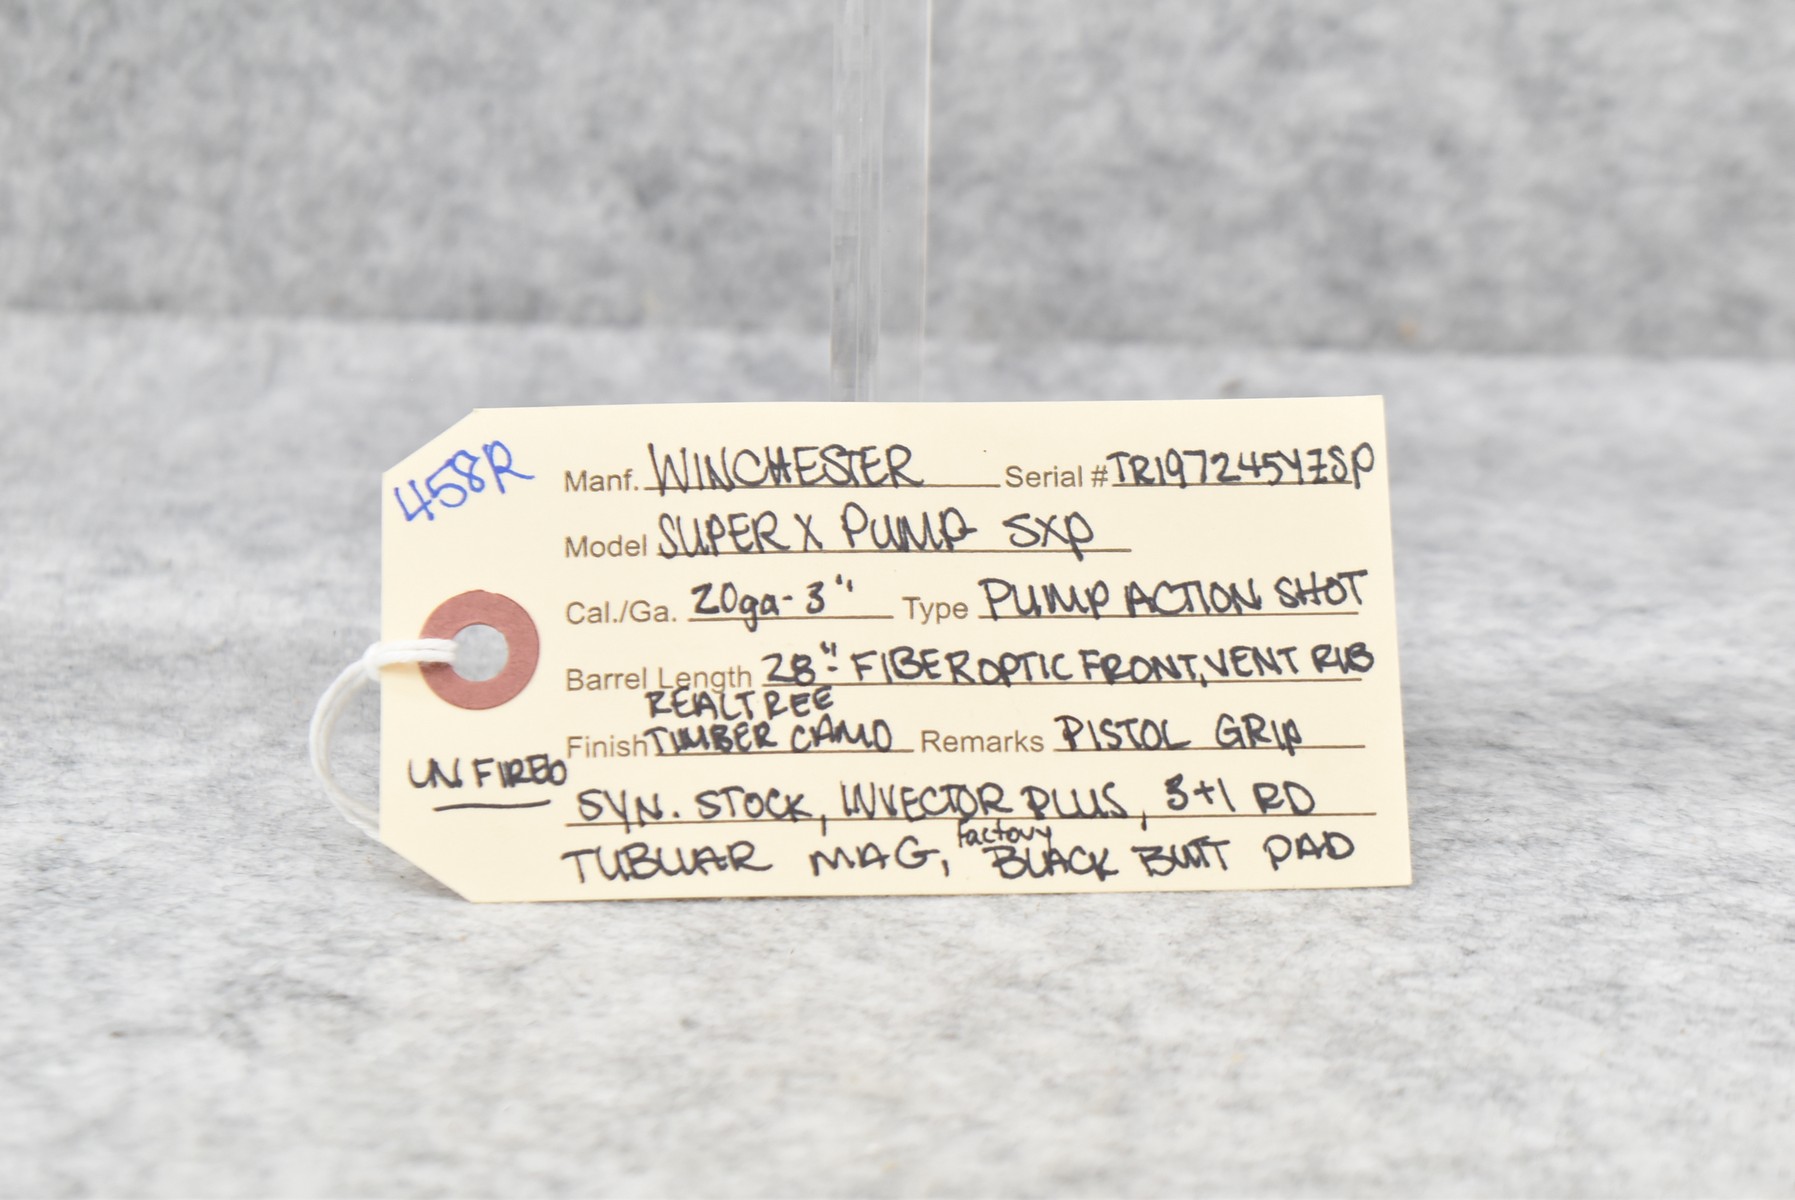 458R
Manf. WINCHESTER Serial # TR197245YZSP
Model SUPER X PUMP SXP
Cal./Ga. 20ga - 3" Type PUMP ACTION SHOT
Barrel Length 28" - FIBER OPTIC FRONT, VENT RIB
REALTREE
Finish TIMBER CAMO Remarks PISTOL GRIP
UNFIRED
SYN. STOCK, INVECTOR PLUS, 3+1 RD
Factory
TUBULAR MAG, BLACK BUTT PAD